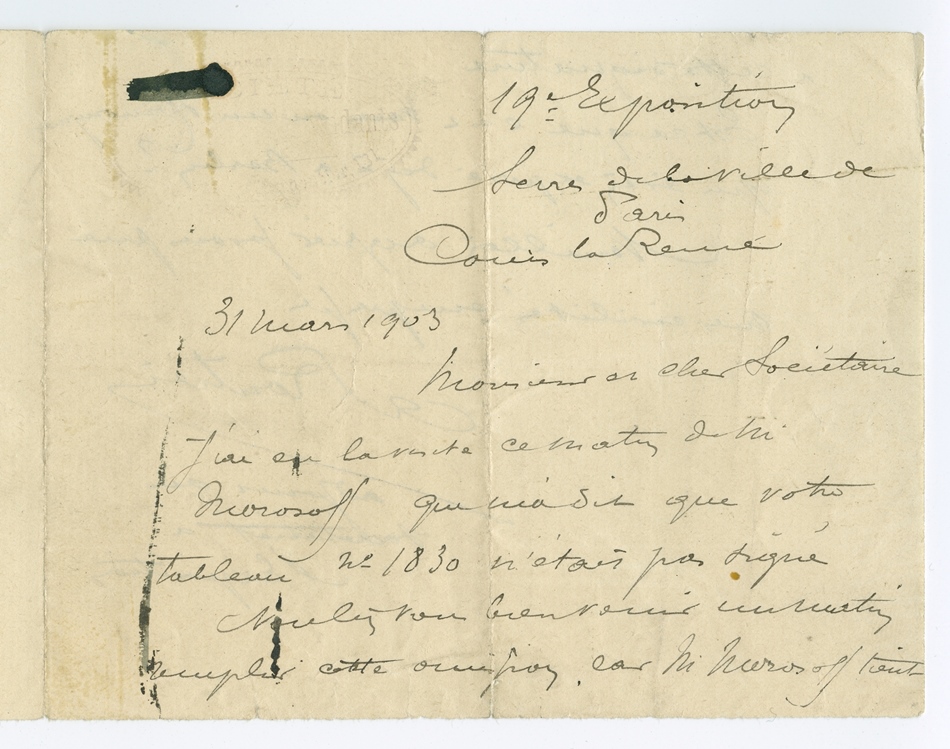 19e Exposition
Serres de la Ville de
Paris
Cours la Reine
31 mars 1903
Monsieur et cher Sociétaire
J'ai eu la visite ce matin de M
Morosoff qui m'a dit que votre
tableau No 1830 n'était pas signé
Voulez vous bien venir un matin
remplir cette omission, car M Morosoff tient